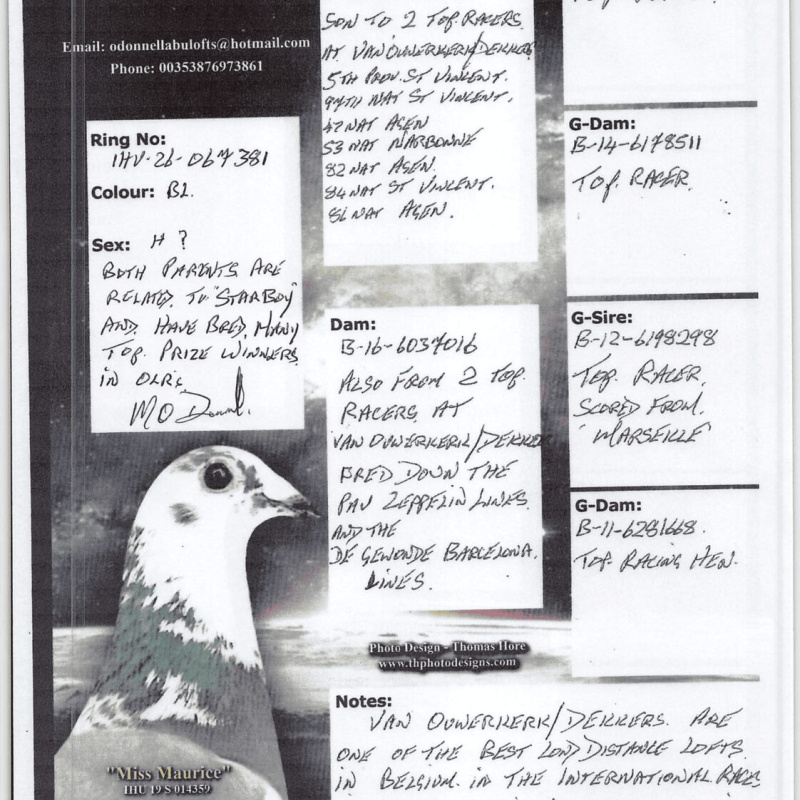 Email: odonnellabulofts@hotmail.com
Phone: 00353876973861
Ring No:
IHU-26-067381
Colour: BL.
Sex: H ?
BOTH PARENTS ARE
RELATED. TO "STARBOY"
AND. HAVE BRED. MANY
TOP. PRIZE WINNERS
IN OLR's
M O Donnell.
SON TO 2 TOP. RACERS.
AT VAN OUWERKERK/DEKKERS
5TH PROV. ST VINCENT.
97TH NAT ST VINCENT.
47 NAT AGEN
53 NAT NARBONNE
82 NAT AGEN.
84 NAT ST VINCENT.
86 NAT AGEN.
Dam:
B-16-6037016
ALSO FROM 2 TOP.
RACERS AT
VAN OUWERKERK/DEKKERS
BRED DOWN THE
PAU ZEPPELIN LINES.
AND THE
DE GEWONDE BARCELONA.
LINES.
G-Dam:
B-14-6178511
TOP. RACER.
G-Sire:
B-12-6198298
TOP. RACER.
SCORED FROM.
'MARSEILLE'
G-Dam:
B-11-6281668.
TOP. RACING HEN.
Photo Design - Thomas Hore
www.thphotodesigns.com
Notes:
VAN OUWERKERK/DEKKERS. ARE
ONE OF THE BEST LONG DISTANCE LOFTS
IN BELGIUM. IN THE INTERNATIONAL RACES
"Miss Maurice"
IHU 19 S 014359